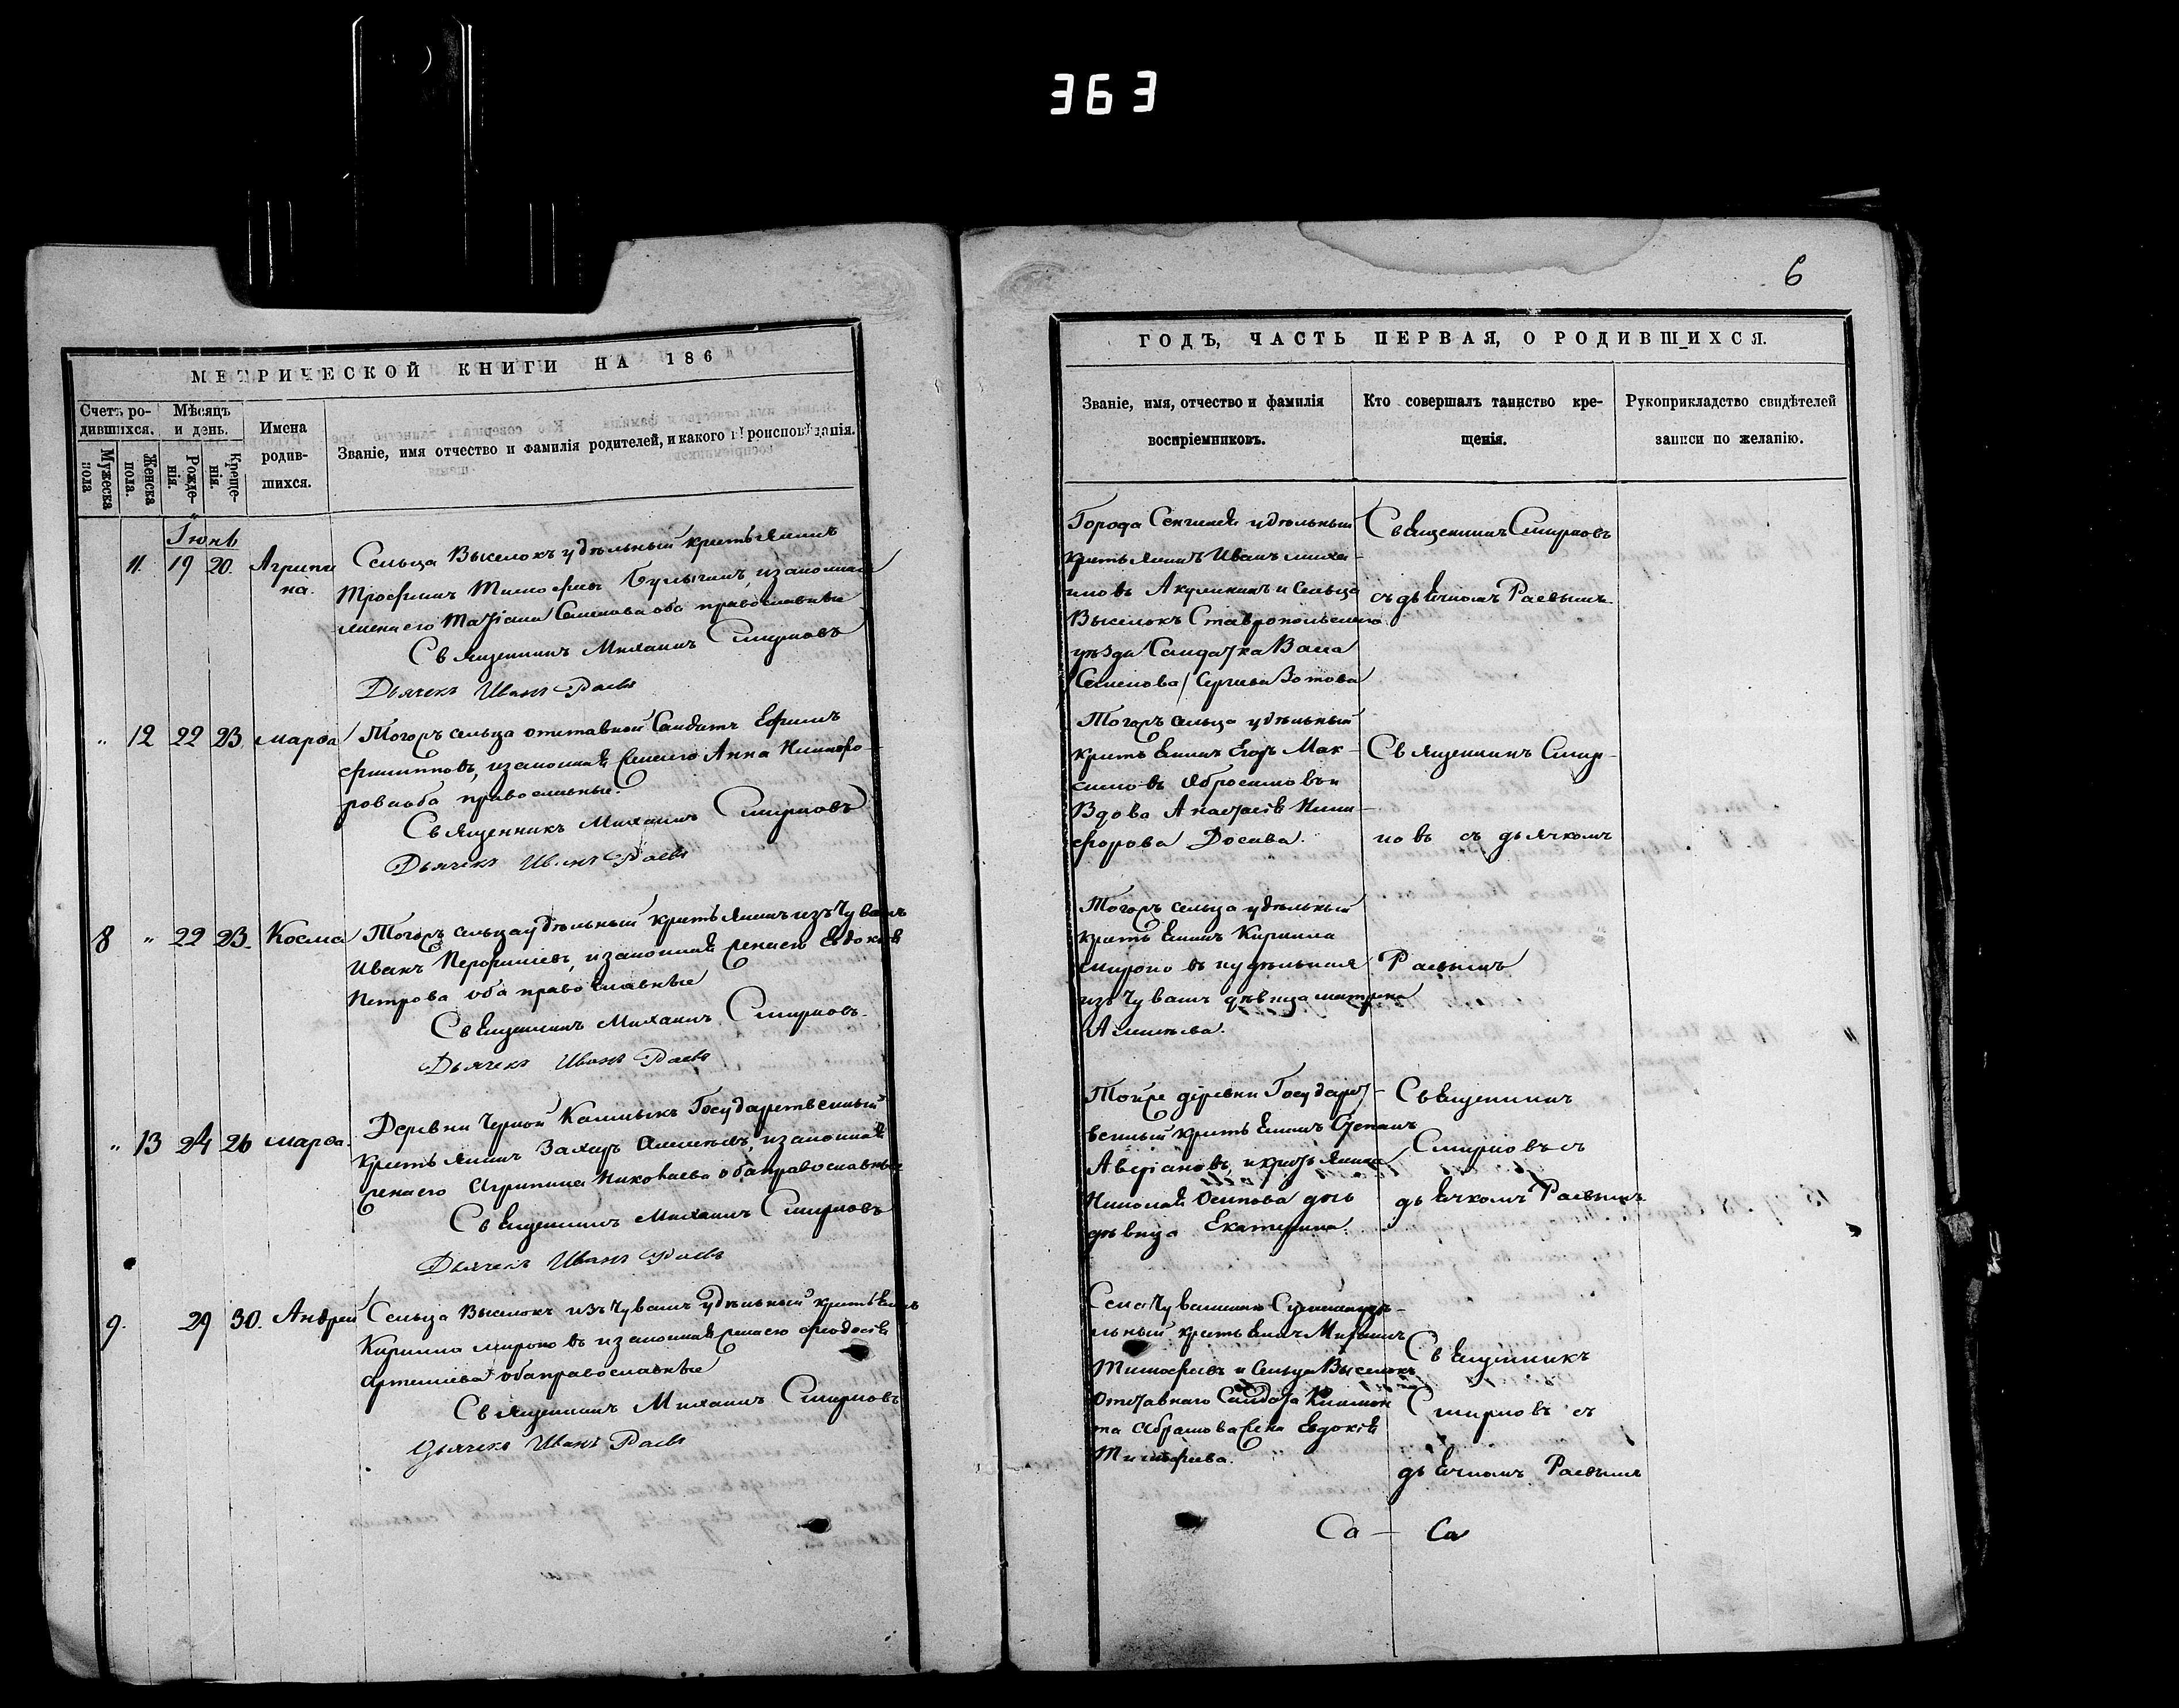 363
6
МЕТРИЧЕСКОЙ КНИГИ НА 186
Счетъ ро-
дившихся.
Мѣсяцъ
и день.
Имена
родив-
шихся.
Званіе, имя отчество и фамилія родителей, и какого вѣроисповѣданія.
Мужеска
пола
Женска
пола.
Рожде-
нія.
Креще-
нія.
Іюнь
11. 19 20. Агрипи
на.
Сельца Выселокъ удѣльный крестьянинъ
Трофимъ Тимофеевъ Булыгинъ, и законная
жена его Татіана Семенова оба православные
Священникъ Михаилъ Смирновъ
Дьячекъ Иванъ Раевъ
" 12 22 23 Марѳа
Тогожъ сельца отставной Солдатъ Ефимъ
Филипповъ, и законная жена его Анна Никифо-
рова оба православные.
Священникъ Михаилъ Смирновъ
Дьячекъ Иванъ Раевъ
8 " 22 23. Косма
Тогожъ сельца удѣльный крестьянинъ изъ Чувашъ
Иванъ Перофишевъ, и законная жена его Евдокія
Петрова оба православные
Священникъ Михаилъ Смирновъ.
Дьячекъ Иванъ Раевъ
" 13 24 26 Марѳа.
Деревни Черной Калмыкъ Государственный
крестьянинъ Захаръ Алексѣевъ, и законная
жена его Агрипина Николаева оба православные
Священникъ Михаилъ Смирновъ
Дьячекъ Иванъ Раевъ
9. 29 30. Андрей
Сельца Выселокъ изъ Чувашъ удѣльный крестьянинъ
Кирилла Мироновъ и законная жена его Феодосія
Артемьева оба православные
Священникъ Михаилъ Смирновъ
Дьячекъ Иванъ Раевъ
ГОДЪ, ЧАСТЬ ПЕРВАЯ, О РОДИВШИХСЯ.
Званіе, имя, отчество и фамилія
воспріемниковъ.
Кто совершалъ таинство кре-
щенія.
Рукоприкладство свидѣтелей
записи по желанію.
Города Сенгилея удѣльный
крестьянинъ Иванъ Миха-
иловъ Акулининъ и Сельца
Выселокъ Ставропольскаго
уѣзда Солдатка Васса
Семенова / Сергиева Зотова
Священникъ Смирновъ
съ дьячкомъ Раевымъ
Тогожъ сельца удѣльный
крестьянинъ Егоръ Мак-
симовъ Абросимовъ и
Вдова Анастасія Ники-
форова Досаева.
Священникъ Смир-
новъ съ дьячкомъ
Тогожъ сельца удѣльный
крестьянинъ Кирилла
Мироновъ и удѣльная
изъ Чувашъ дѣвица Матрена
Алексѣева.
Раевымъ
Тойже деревни Государст-
венный крестьянинъ Степанъ
Аверіановъ, и крестьянина
Николая Осипова дочь
дѣвица Екатерина.
Священникъ
Смирновъ съ
дьячкомъ Раевымъ
льный крестьянинъ
Тимофеевъ и Сельца Выселокъ
Отставнаго Солдата Климен
та Абрамова жена Евдокія
Тимофеева.
Священникъ
Смирновъ съ
дьячкомъ Раевымъ
Са — Са